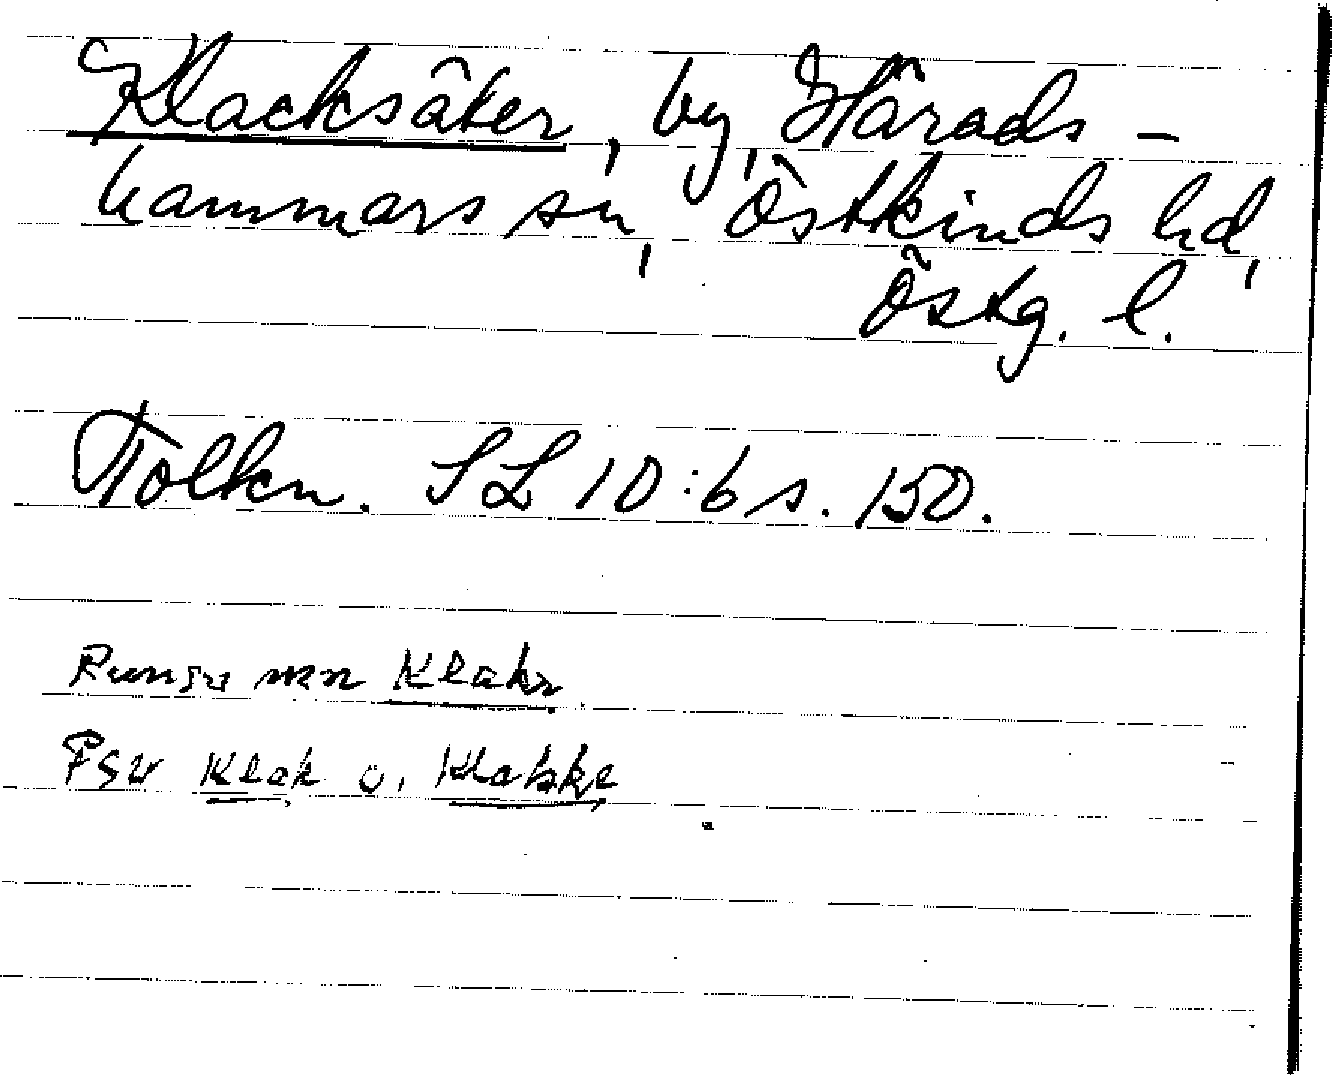 Klacksåker, by, Härads-
hammars sn, Östkinds hd,
Östg. l.
Tolkn. SL 10:6 s. 150.
Runsv mn Klakr
Fsv Klak o. Klakke